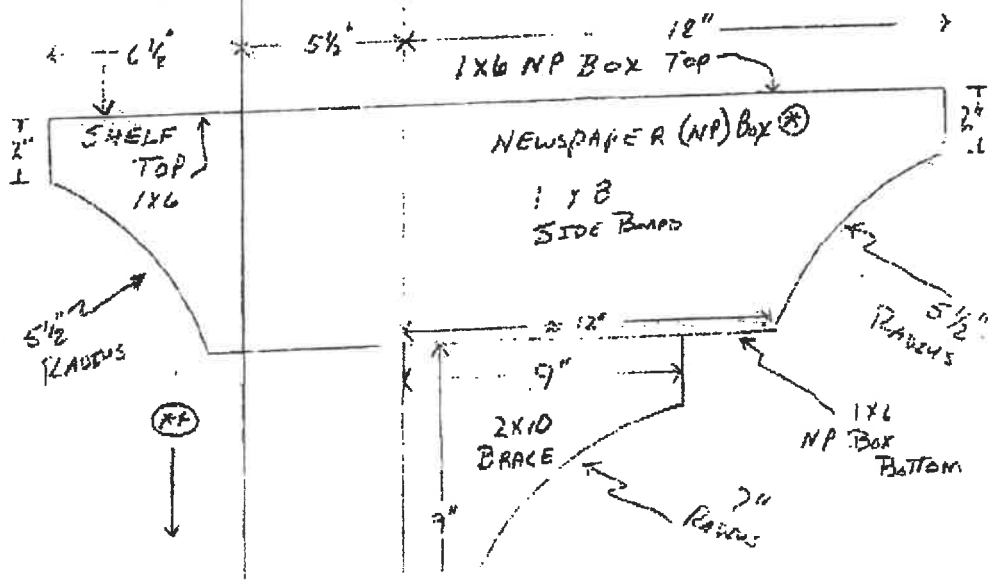 6 1/2"
5 1/2"
18"
1X6 NP BOX TOP
2"
SHELF
TOP
1X6
NEWSPAPER (NP) BOX *
1 X 8
SIDE BOARD
2"
5 1/2"
RADIUS
5 1/2"
RADIUS
≈ 12"
9"
**
2X10
BRACE
1X6
NP BOX
BOTTOM
9"
7"
RADIUS